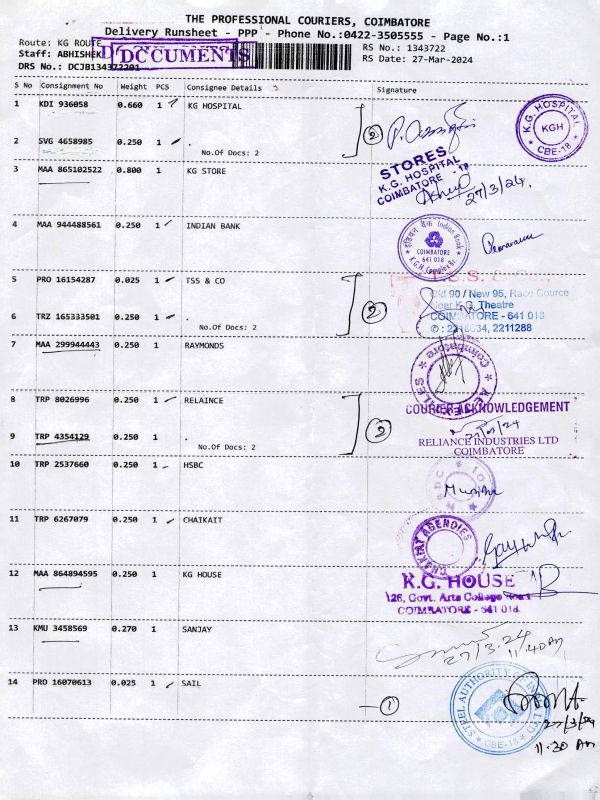 THE PROFESSIONAL COURIERS, COIMBATORE
Delivery Runsheet - PPP - Phone No.:0422-3505555 - Page No.:1
Route: KG ROUTE
RS No.: 1343722
Staff: ABHISHEK
DOCUMENTS
RS Date: 27-Mar-2024
DRS No.: DCJB134372201
S No Consignment No Weight PCS Consignee Details Signature
1 KDI 936058 0.660 1 KG HOSPITAL
K.G. HOSPITAL
KGH
CBE-18
2
2 SVG 4658985 0.250 1 .
No.Of Docs: 2
STORES
K.G. HOSPITAL
COIMBATORE - 18
3 MAA 865102522 0.800 1 KG STORE
27/3/24.
4 MAA 944488561 0.250 1 INDIAN BANK
इंडियन बैंक Indian Bank
COIMBATORE
641 018
5 PRO 16154287 0.025 1 TSS & CO
Old 90 / New 95, Race Cource
Near K.G. Theatre
COIMBATORE - 641 018
2
6 TRZ 165333501 0.250 1 .
No.Of Docs: 2
7 MAA 299944443 0.250 1 RAYMONDS
Coimbatore
8 TRP 8026996 0.250 1 RELAINCE
COURIER ACKNOWLEDGEMENT
2
9 TRP 4354129 0.250 1 .
No.Of Docs: 2
RELIANCE INDUSTRIES LTD
COIMBATORE
10 TRP 2537660 0.250 1 HSBC
11 TRP 6267079 0.250 1 CHAIKAIT
AGENCIES
12 MAA 864894595 0.250 1 KG HOUSE
K.G. HOUSE
126, Govt. Arts College Road
COIMBATORE - 641 018
13 KMU 3458569 0.270 1 SANJAY
27/3.24
11:40 AM
14 PRO 16070613 0.025 1 SAIL
1
STEEL AUTHORITY OF INDIA LTD
CBE-18
27/3/24
11.30 AM